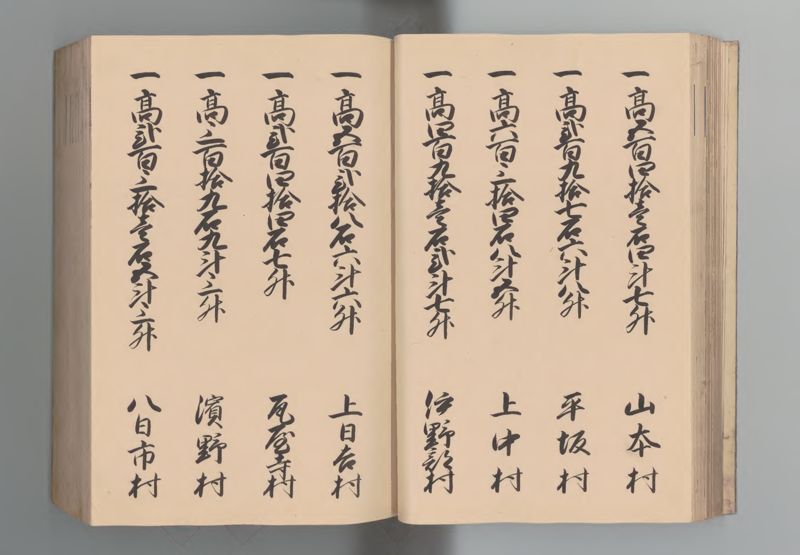 一高五百四拾壱石四斗七升 山本村
一高弐百九拾七石六斗八升 平坂村
一高六百三拾四石八斗五升 上中村
一高四百九拾壱石弐斗七升 伊野部村
一高五百弐拾八石六斗六升 上日吉村
一高弐百四拾四石七升 瓦屋寺村
一高三百拾九石九斗三升 濱野村
一高弐百三拾壱石五斗三升 八日市村